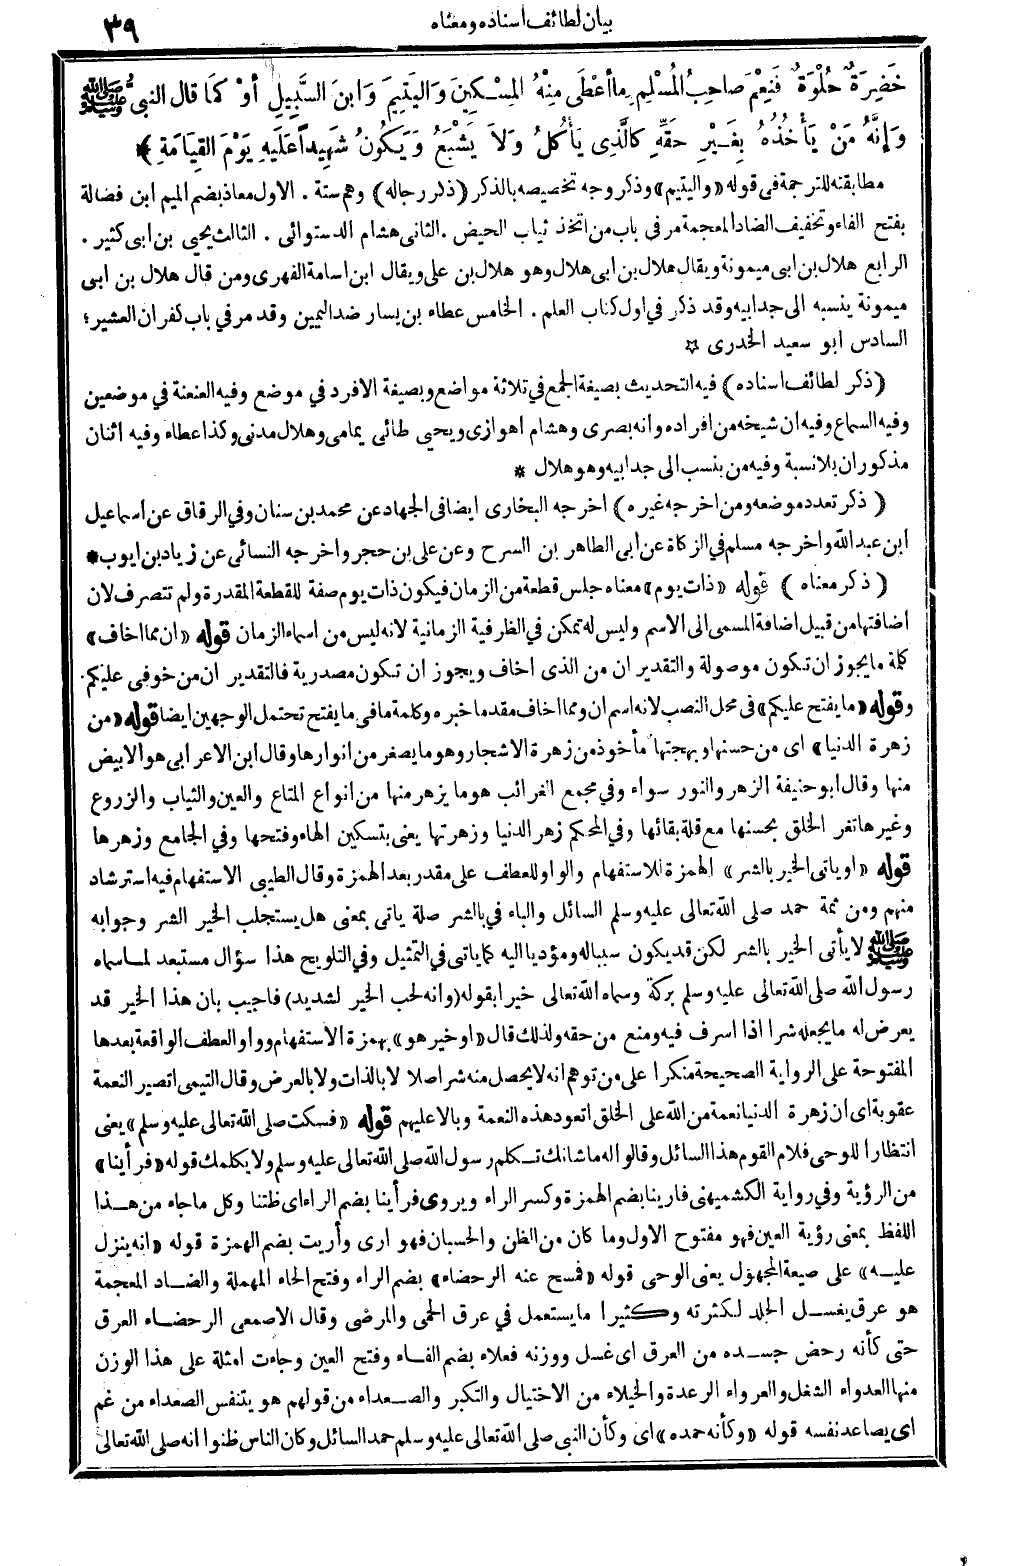 بيان لطائف أسناده ومعناه
٣٩
خَضِرَةٌ حُلْوَةٌ فَنِعْمَ صَاحِبُ المُسْلِمِ ما أعْطَى مِنْهُ المِسْكِينَ وَاليَتِيمَ وَابنَ السَّبِيلِ أوْ كمَا قال النبيُّ ﷺ
وَإنَّهُ مَنْ يَأْخُذُهُ بِغَيْرِ حَقِّهِ كالَّذِى يَأْكُلُ وَلاَ يَشْبَعُ وَيَكُونُ شَهِيداً عَلَيهِ يَوْمَ القِيَامَةِ ﴾ *
مطابقته للترجمة فى قوله «واليتيم» وذكر وجه تخصيصه بالذكر (ذكر رجاله) وهم ستة . الاول معاذ بضم الميم ابن فضالة
بفتح الفاء وتخفيف الضاد المعجمة مر في باب من اتخذ ثياب الحيض . الثانى هشام الدستوائى . الثالث يحيى بن ابى كثير .
الرابع هلال بن ابى ميمونة ويقال هلال بن ابى هلال وهو هلال بن على ويقال ابن اسامة الفهرى ومن قال هلال بن ابى
ميمونة ينسبه الى جد ابيه وقد ذكر في اول كتاب العلم . الخامس عطاء بن يسار ضد اليمين وقد مر في باب كفران العشير ؛
السادس ابو سعيد الخدرى ☆
(ذكر لطائف اسناده) فيه التحديث بصيغة الجمع في ثلاثة مواضع وبصيغة الافرد في موضع وفيه العنعنة في موضعين
وفيه السماع وفيه ان شيخه من افراده وانه بصرى وهشام اهوازى ويحيى طائى يمامى وهلال مدنى وكذا عطاء وفيه اثنان
مذكوران بلا نسبة وفيه من ينسب الى جد ابيه وهو هلال *
( ذكر تعدد موضعه ومن اخرجه غيره ) اخرجه البخارى ايضا فى الجهاد عن محمد بن سنان وفي الرقاق عن اسماعيل
ابن عبد الله واخرجه مسلم في الزكاة عن أبى الطاهر بن السرح وعن على بن حجر واخرجه النسائى عن زياد بن ايوب *
( ذكر معناه ) قوله «ذات يوم» معناه جلس قطعة من الزمان فيكون ذات يوم صفة للقطعة المقدرة ولم تتصرف لان
أضافتها من قبيل اضافة المسمى الى الاسم وليس له تمكن في الظرفية الزمانية لانه ليس من اسماء الزمان قوله «ان مما اخاف»
كلمة ما يجوز ان تكون موصولة والتقدير ان من الذى اخاف ويجوز ان تكون مصدرية فالتقدير ان من خوفى عليكم .
وقوله «ما يفتح عليكم» فى محل النصب لانه اسم ان ومما اخاف مقدما خبره وكلمة ما فى ما يفتح تحتمل الوجهين ايضا قوله «من
زهرة الدنيا» اى من حسنها وبهجتها مأخوذ من زهرة الاشجار وهو ما يصغر من انوارها وقال ابن الاعرابى هو الابيض
منها وقال ابو حنيفة الزهر والنور سواء وفي مجمع الغرائب هو ما يزهر منها من أنواع المتاع والعين والثياب والزروع
وغيرها تغر الخلق بحسنها مع قلة بقائها وفي المحكم زهر الدنيا وزهرتها يعنى بتسكين الهاء وفتحها وفي الجامع وزهرها
قوله «او ياتى الخير بالشر» الهمزة للاستفهام والواو للعطف على مقدر بعد الهمزة وقال الطيبى الاستفهام فيه استرشاد
منهم ومن ثمة حمد صلى الله تعالى عليه وسلم السائل والباء في بالشر صلة ياتى بمعنى هل يستجلب الخير الشر وجوابه
ﷺ لا يأتى الخير بالشر لكن قد يكون سببا له ومؤديا اليه كما ياتى في التمثيل وفي التلويح هذا سؤال مستبعد لما سماه
رسول الله صلى الله تعالى عليه وسلم بركة وسماه الله تعالى خيرا بقوله (وانه لحب الخير لشديد) فاجيب بان هذا الخير قد
يعرض له ما يجعله شرا اذا اسرف فيه ومنع من حقه ولذلك قال «او خير هو» بهمزة الاستفهام وواو العطف الواقعة بعدها
المفتوحة على الرواية الصحيحة منكرا على من توهم انه لا يحصل منه شر اصلا لا بالذات ولا بالعرض وقال التيمى اتصير النعمة
عقوبة اى ان زهرة الدنيا نعمة من الله على الخلق اتعود هذه النعمة وبالا عليهم قوله «فسكت صلى الله تعالى عليه وسلم» يعنى
انتظارا للوحى فلام القوم هذا السائل وقالوا له ما شانك تكلم رسول الله صلى الله تعالى عليه وسلم ولا يكلمك قوله «فرأينا»
من الرؤية وفي رواية الكشميهنى فارينا بضم الهمزة وكسر الراء ويروى فرأينا بضم الراء اى ظننا وكل ما جاء من هذا
اللفظ بمعنى رؤية العين فهو مفتوح الاول وما كان من الظن والحسبان فهو ارى وأريت بضم الهمزة قوله «انه ينزل
عليه» على صيعة المجهول يعنى الوحى قوله «فمسح عنه الرحضاء» بضم الراء وفتح الحاء المهملة والضاد المعجمة
هو عرق يغسل الجلد لكثرته وكثيرا ما يستعمل في عرق الحمى والمرضى وقال الاصمعى الرحضاء العرق
حتى كأنه رحض جسده من العرق اى غسل ووزنه فعلاء بضم الفاء وفتح العين وجاءت امثلة على هذا الوزن
منها العدواء الشغل والعرواء الرعدة والخيلاء من الاختيال والتكبر والصعداء من قولهم هو يتنفس الصعداء من غم
اى يصاعد نفسه قوله «وكأنه حمده» اى وكأن النبى صلى الله تعالى عليه وسلم حمد السائل وكان الناس ظنوا انه صلى الله تعالى